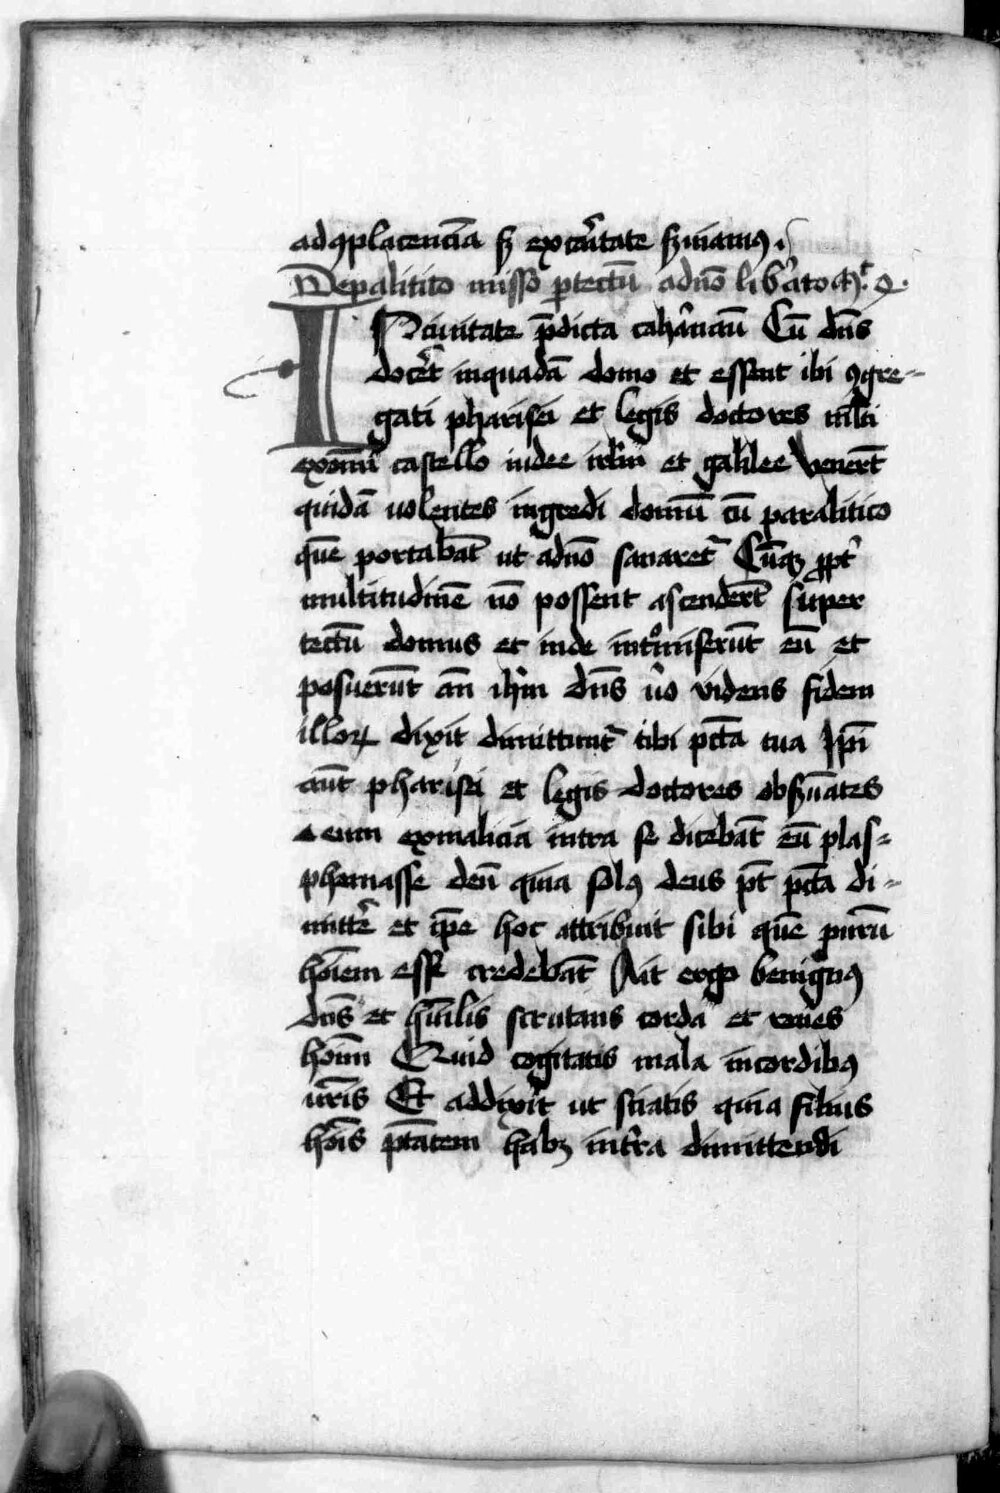 ad ꝯplacenciā sꝫ ex caͬitate sꝫuiamꝰ
De palitico misso ꝑ tectū a dn̄o libͤato
In ciuitate p̄dicta cahͬnaū Cū dn̄s
docēt in quadā domo et essent ibi ꝯgre-
gati pharisei et legis doctores ml̄ti
ex om̄i castello iudee irl̄m et galilee Venert̄
quidā uolentes ingredi domū cū paralitico
quē portabāt ut a dn̄o sanaretᷣ Cūqꝫ ꝓpt̓
multitudinē nō possent ascendert̄ super
tectū domus et inde intͦmiserūt eū et
posuerūt an̄ ihm̄ dn̄s ūo videns fidem
illoꝝ dixit dimittuntᷣ tibi pctā tua Ip̄i
aūt pharisei et legis doctores obsꝫuātes
eum ex malicia intra se dicebāt eū plas-
phemasse deū quia solꝰ deus pt̄ pctā di-
mittͤe et ip̄e hoc attribuit sibi quē purū
hoīem esse credebāt Ait ergo benignꝰ
dn̄s et hūilis scrutans corda et renes
hoīm Quid cogitatis mala in cordibꝰ
ur̄is Et addixit ut sciatis quia filius
hoīs ptātem habꝫ in tr̄a dimittendi